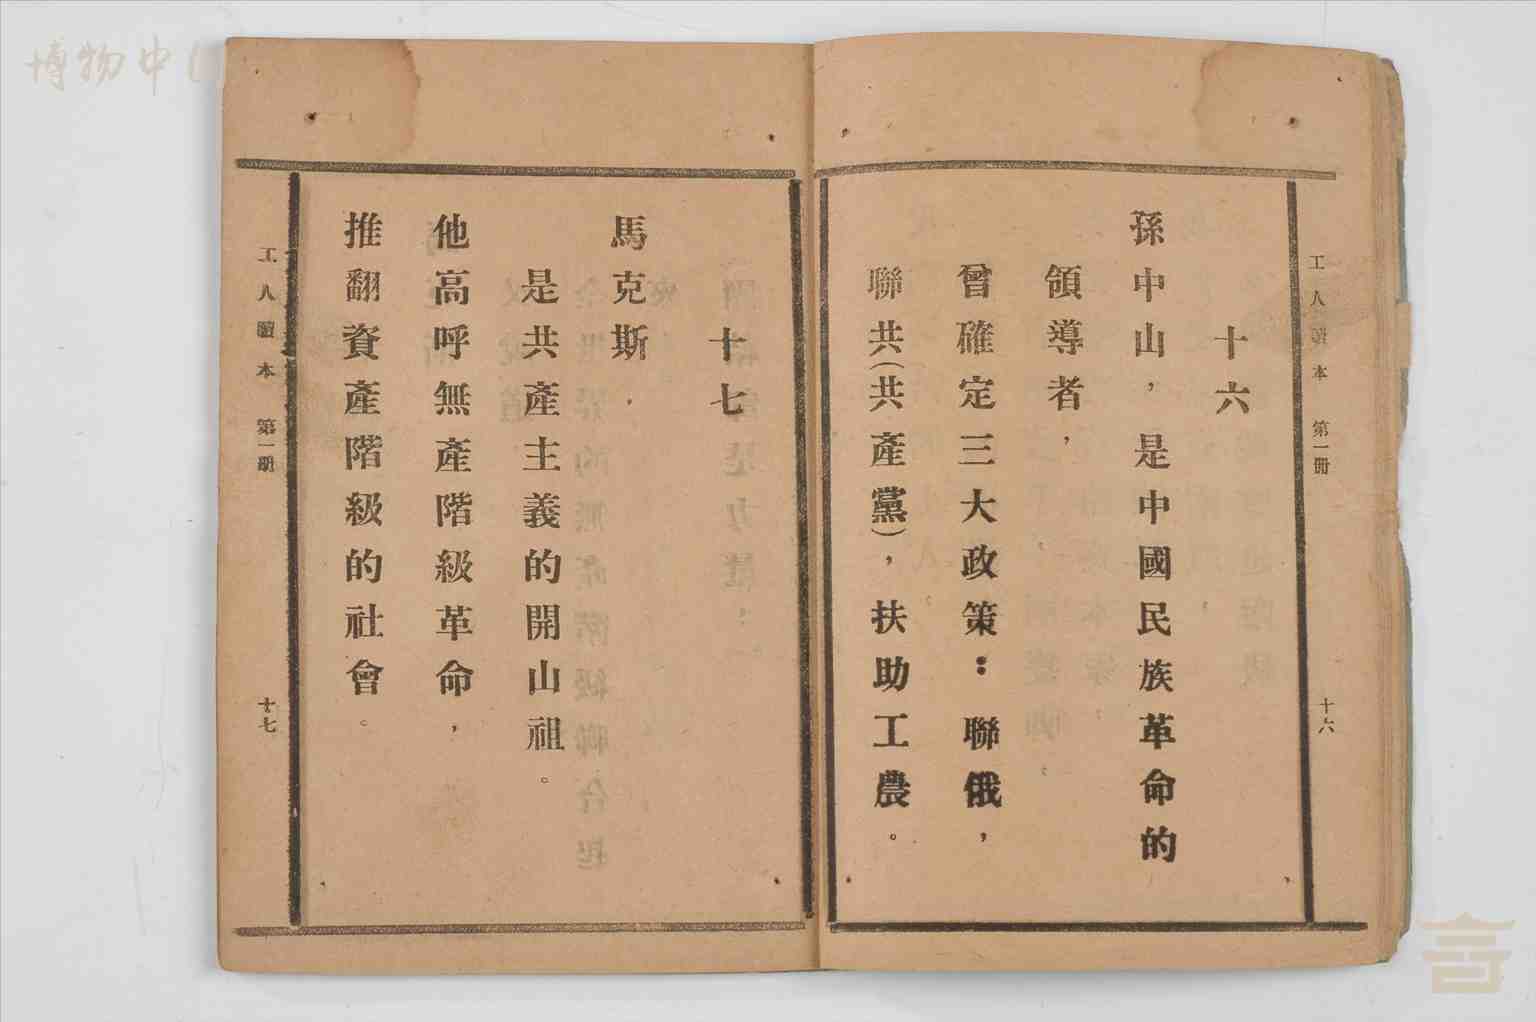 博物中
工人讀本 第一冊 十六
十六
孫中山，是中國民族革命的
領導者，
曾確定三大政策：聯俄，
聯共（共產黨），扶助工農。
十七
馬克斯，
是共產主義的開山祖。
他高呼無產階級革命，
推翻資產階級的社會。
工人讀本 第一冊 十七